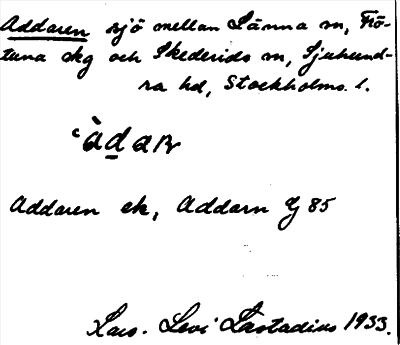 Addaren sjö mellan Länna sn, Frö-
tuna skg och Skederids sn, Sjuhund-
ra hd, Stockholms. l.
Addaren ek, Addarn G 85
Lars-Levi Læstadius 1933.